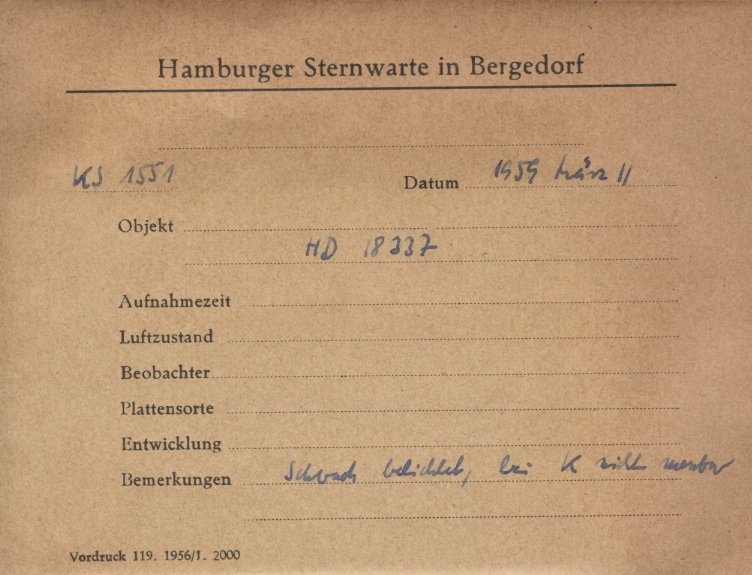 Hamburger Sternwarte in Bergedorf
KS 1551
Datum 1959 März 11
Objekt
HD 18337
Aufnahmezeit
Luftzustand
Beobachter
Plattensorte
Entwicklung
Bemerkungen Schwach belichtet, bei K nicht messbar
Vordruck 119. 1956/1. 2000